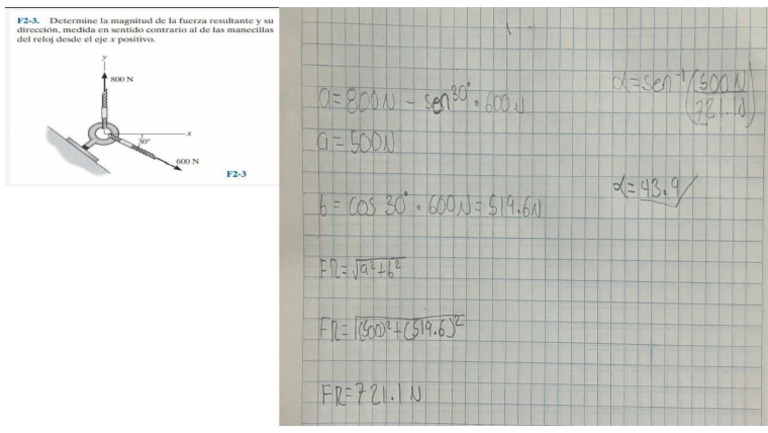 F2-3. Determine la magnitud de la fuerza resultante y su
dirección, medida en sentido contrario al de las manecillas
del reloj desde el eje x positivo.
y
800 N
x
30°
600 N
F2-3
a = 800N - sen30° · 600N
a = 500N
b = cos 30° · 600N = 519.6N
FR = √a²+b²
FR = √(500)²+(519.6)²
FR = 721.1 N
α = sen⁻¹ (500N
(721.1N)
α = 43.9